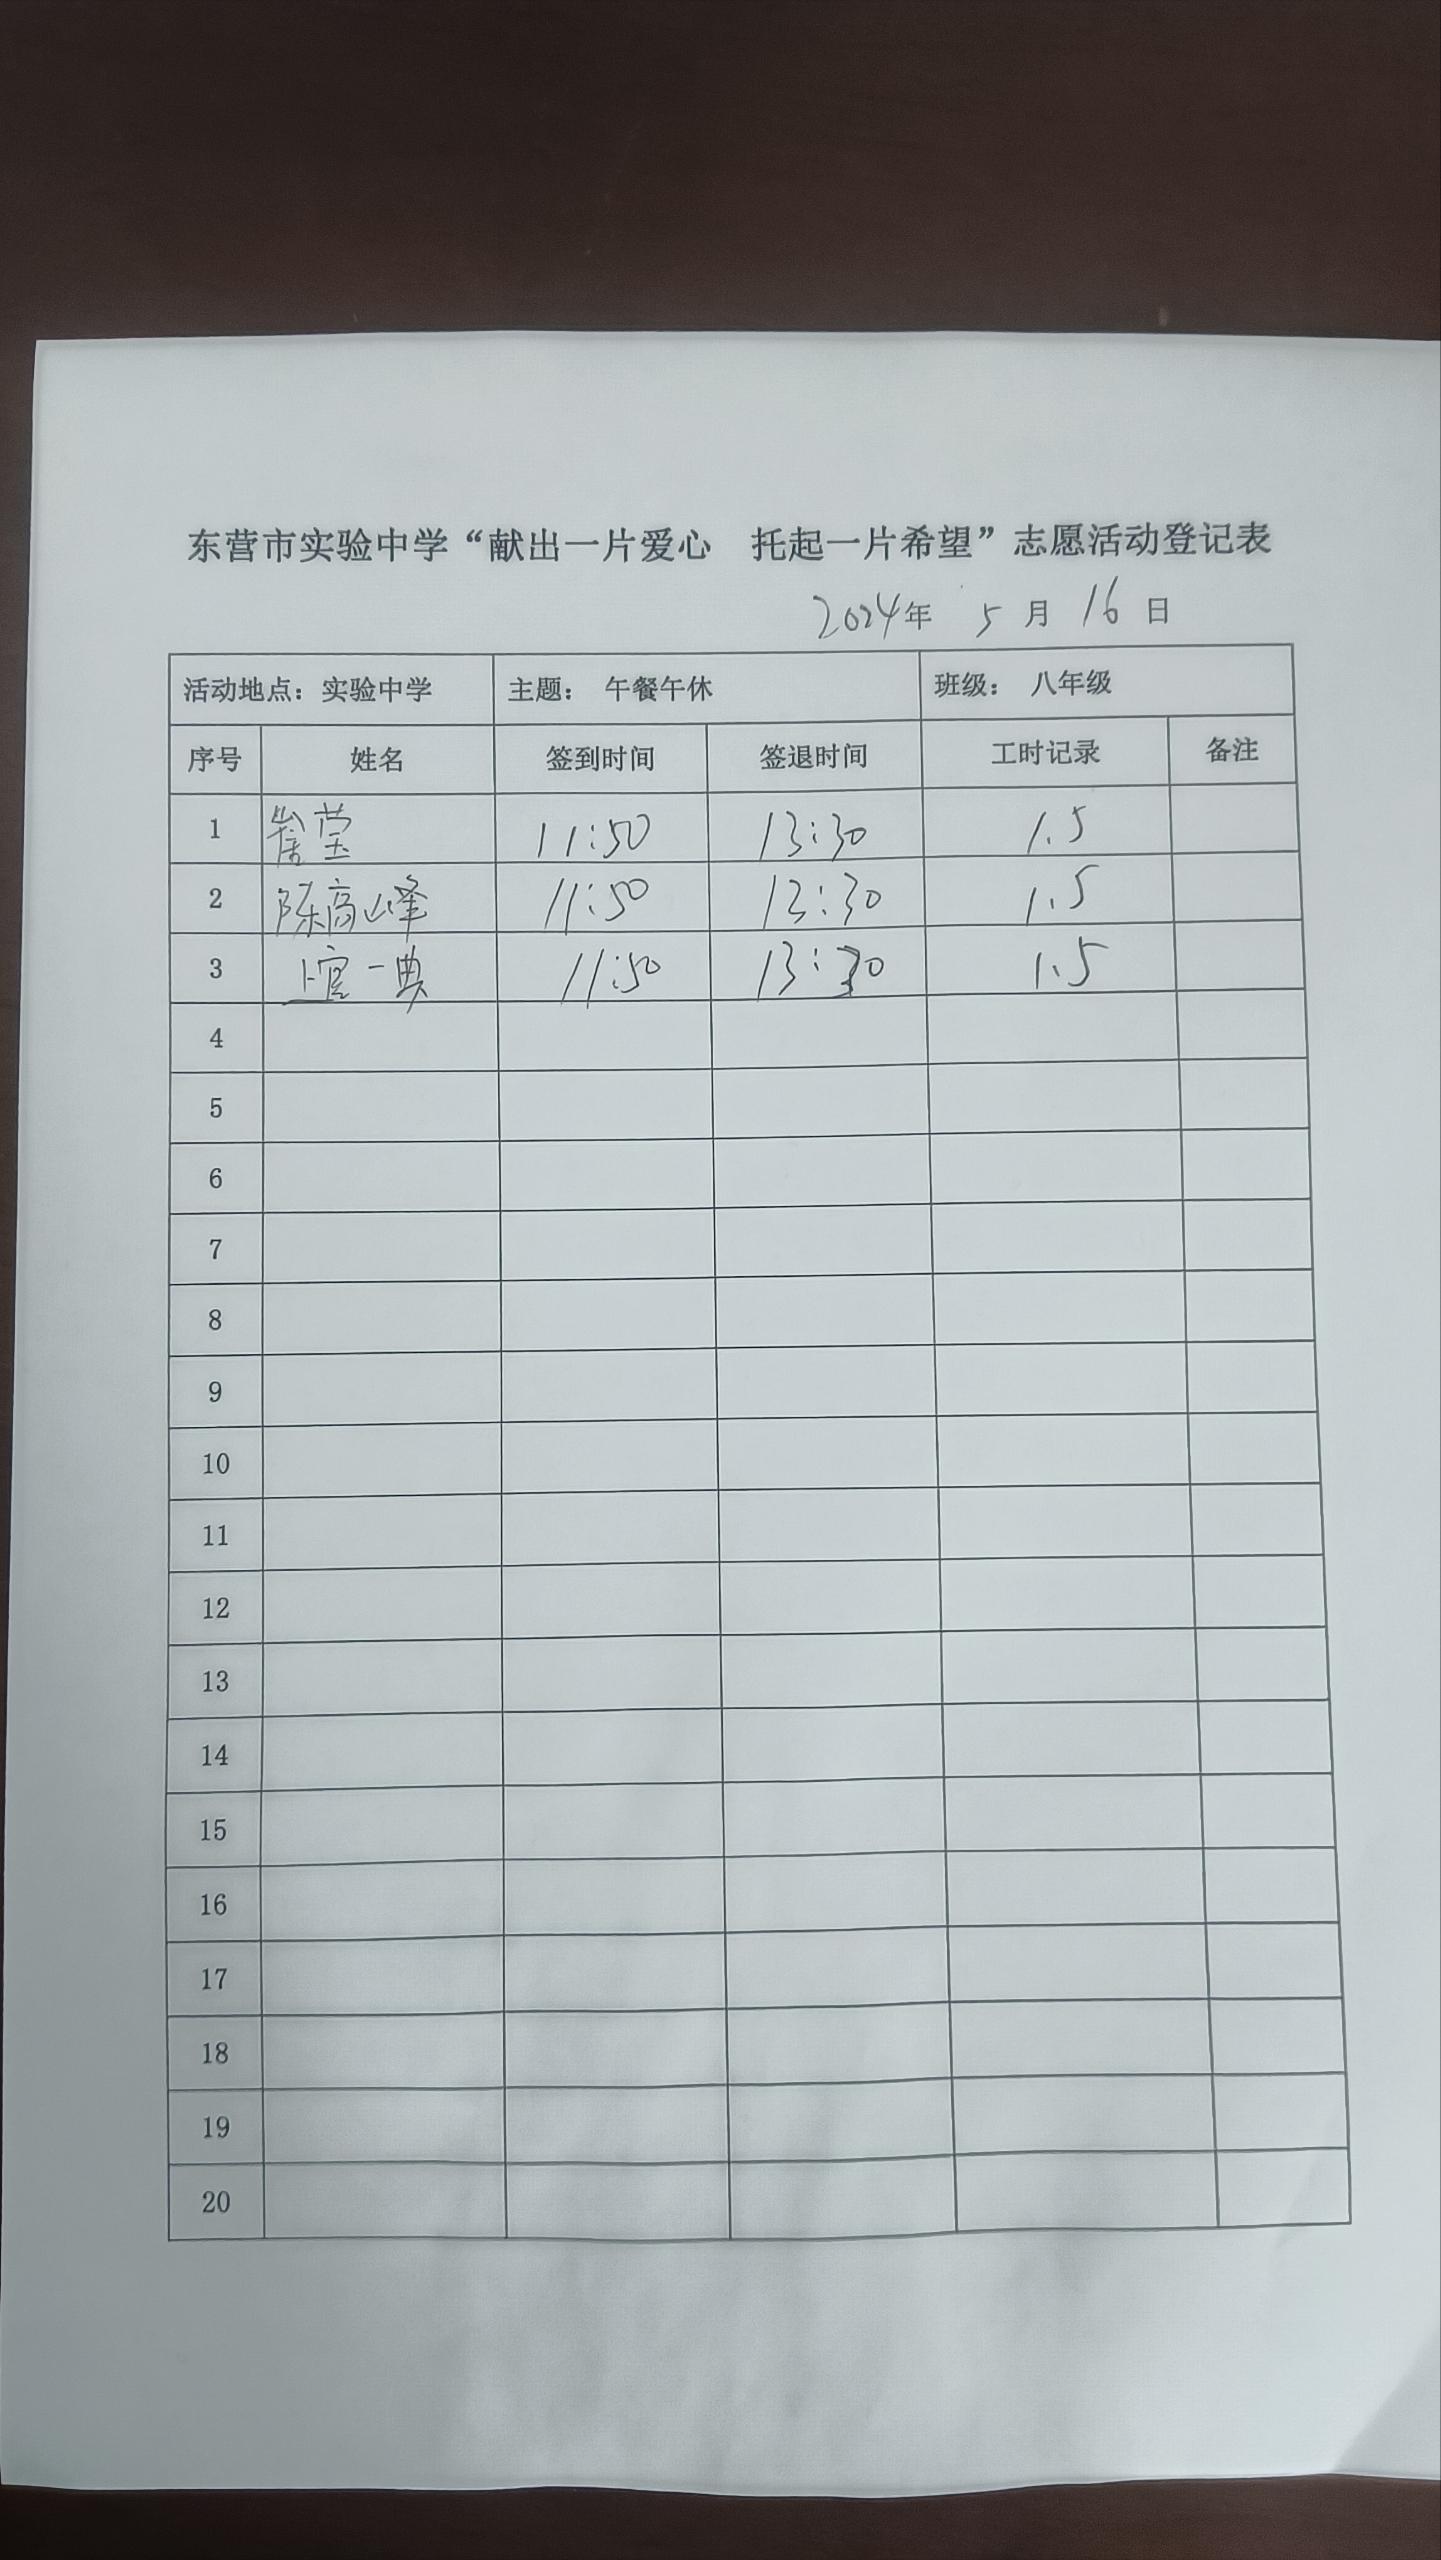 东营市实验中学“献出一片爱心 托起一片希望”志愿活动登记表
2024年 5 月 16 日
活动地点：实验中学 主题： 午餐午休 班级： 八年级
序号 姓名 签到时间 签退时间 工时记录 备注
1 莹 11:50 13:30 1.5
2 陈高峰 11:50 13:30 1.5
3 上官一典 11:50 13:30 1.5
4
5
6
7
8
9
10
11
12
13
14
15
16
17
18
19
20